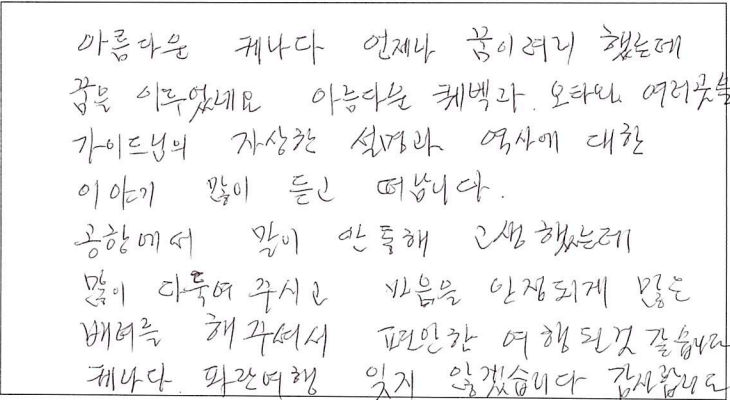 아름다운 케나다 언제나 꿈이려니 했는데
꿈을 이루었네요 아름다운 퀘벡과. 오타와 여러곳을
가이드님의 자상한 설명과 역사에 대한
이야기 많이 듣고 떠납니다.
공항에서 말이 안통해 고생했는데
많이 다독여 주시고 마음을 안정되게 많은
배려를 해주셔서 편안한 여행된것 같습니다
케나다. 파란여행 잊지 않겠습니다 감사합니다